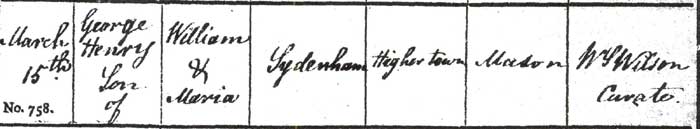 March
15th
No. 758.
George
Henry
Son
of
William
&
Maria
Sydenham
Higher town
Mason
Wilson
Curate.